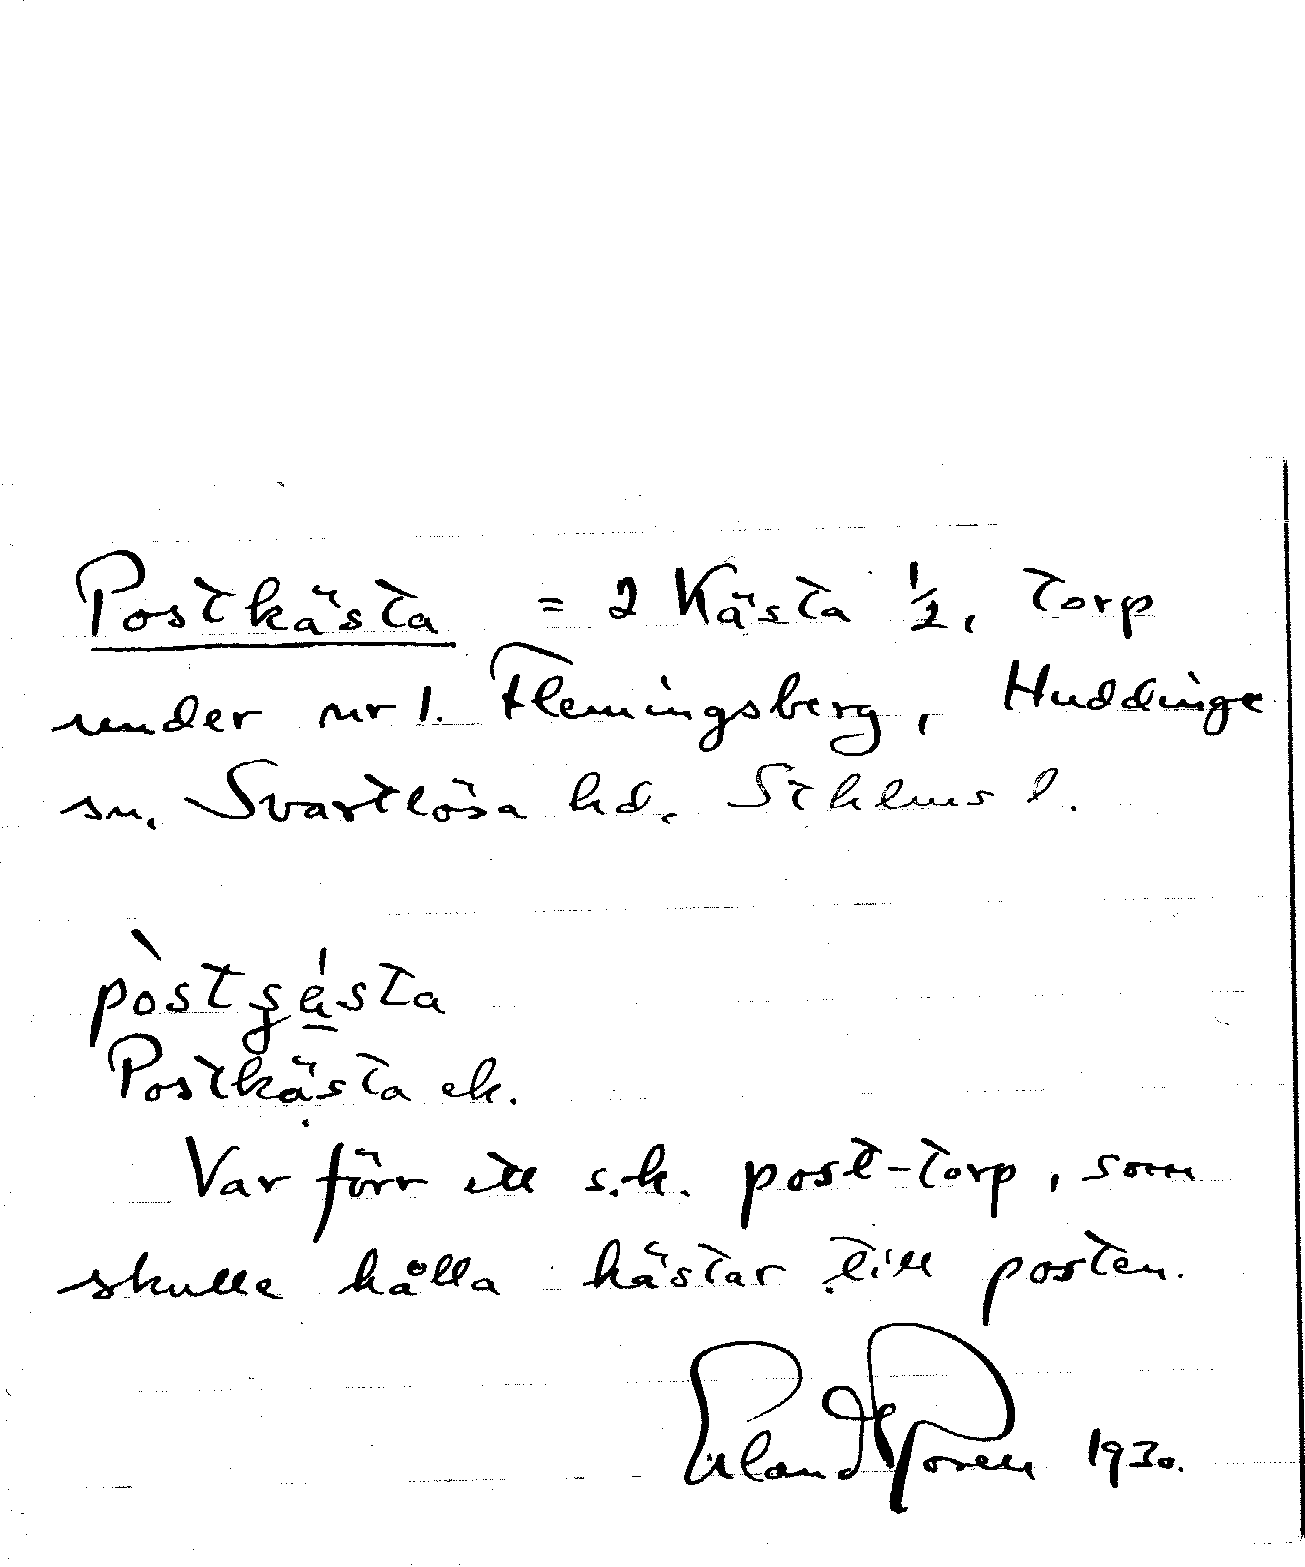 Postkästa = 2 Kästa ½, torp
under nr 1. Flemingsberg, Huddinge
sn. Svartlösa hd. Sthlms l.
Postkästa ek.
Var förr ett s.k. post-torp, som
skulle hålla hästar till posten.
Erland Rosell 1930.